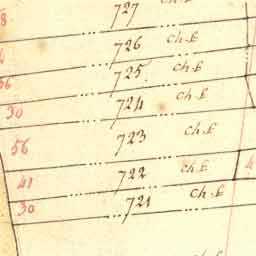 727
726 ch.£
725 ch.£
30 724 ch.£
56 723 ch.£
41 722 ch.£
30 721 ch.£